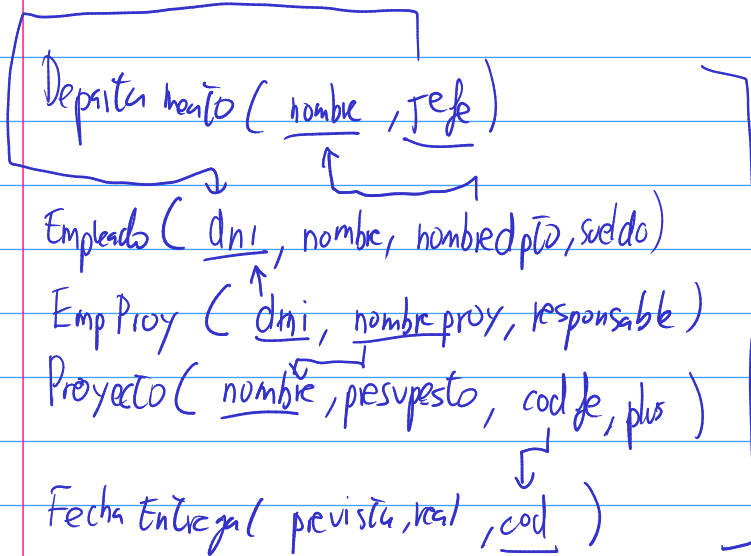 Departamento ( nombre , jefe )
Empleado ( dni, nombre, nombredpto, sueldo)
EmpProy ( dni, nombreproy, responsable )
Proyecto ( nombre, presupesto, codfe, plus )
FechaEntrega ( prevista, real , cod )